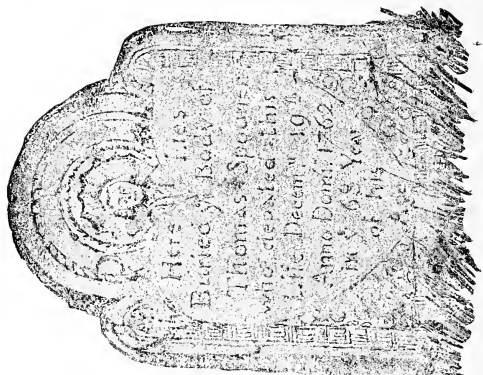 Here Lies
Buried yᵉ Body of
Thomas Spooner
who depated this
Life Decemʳ 19ᵗʰ
Anno Domⁱ 1762
in yᵉ 69 Year
of his
Age